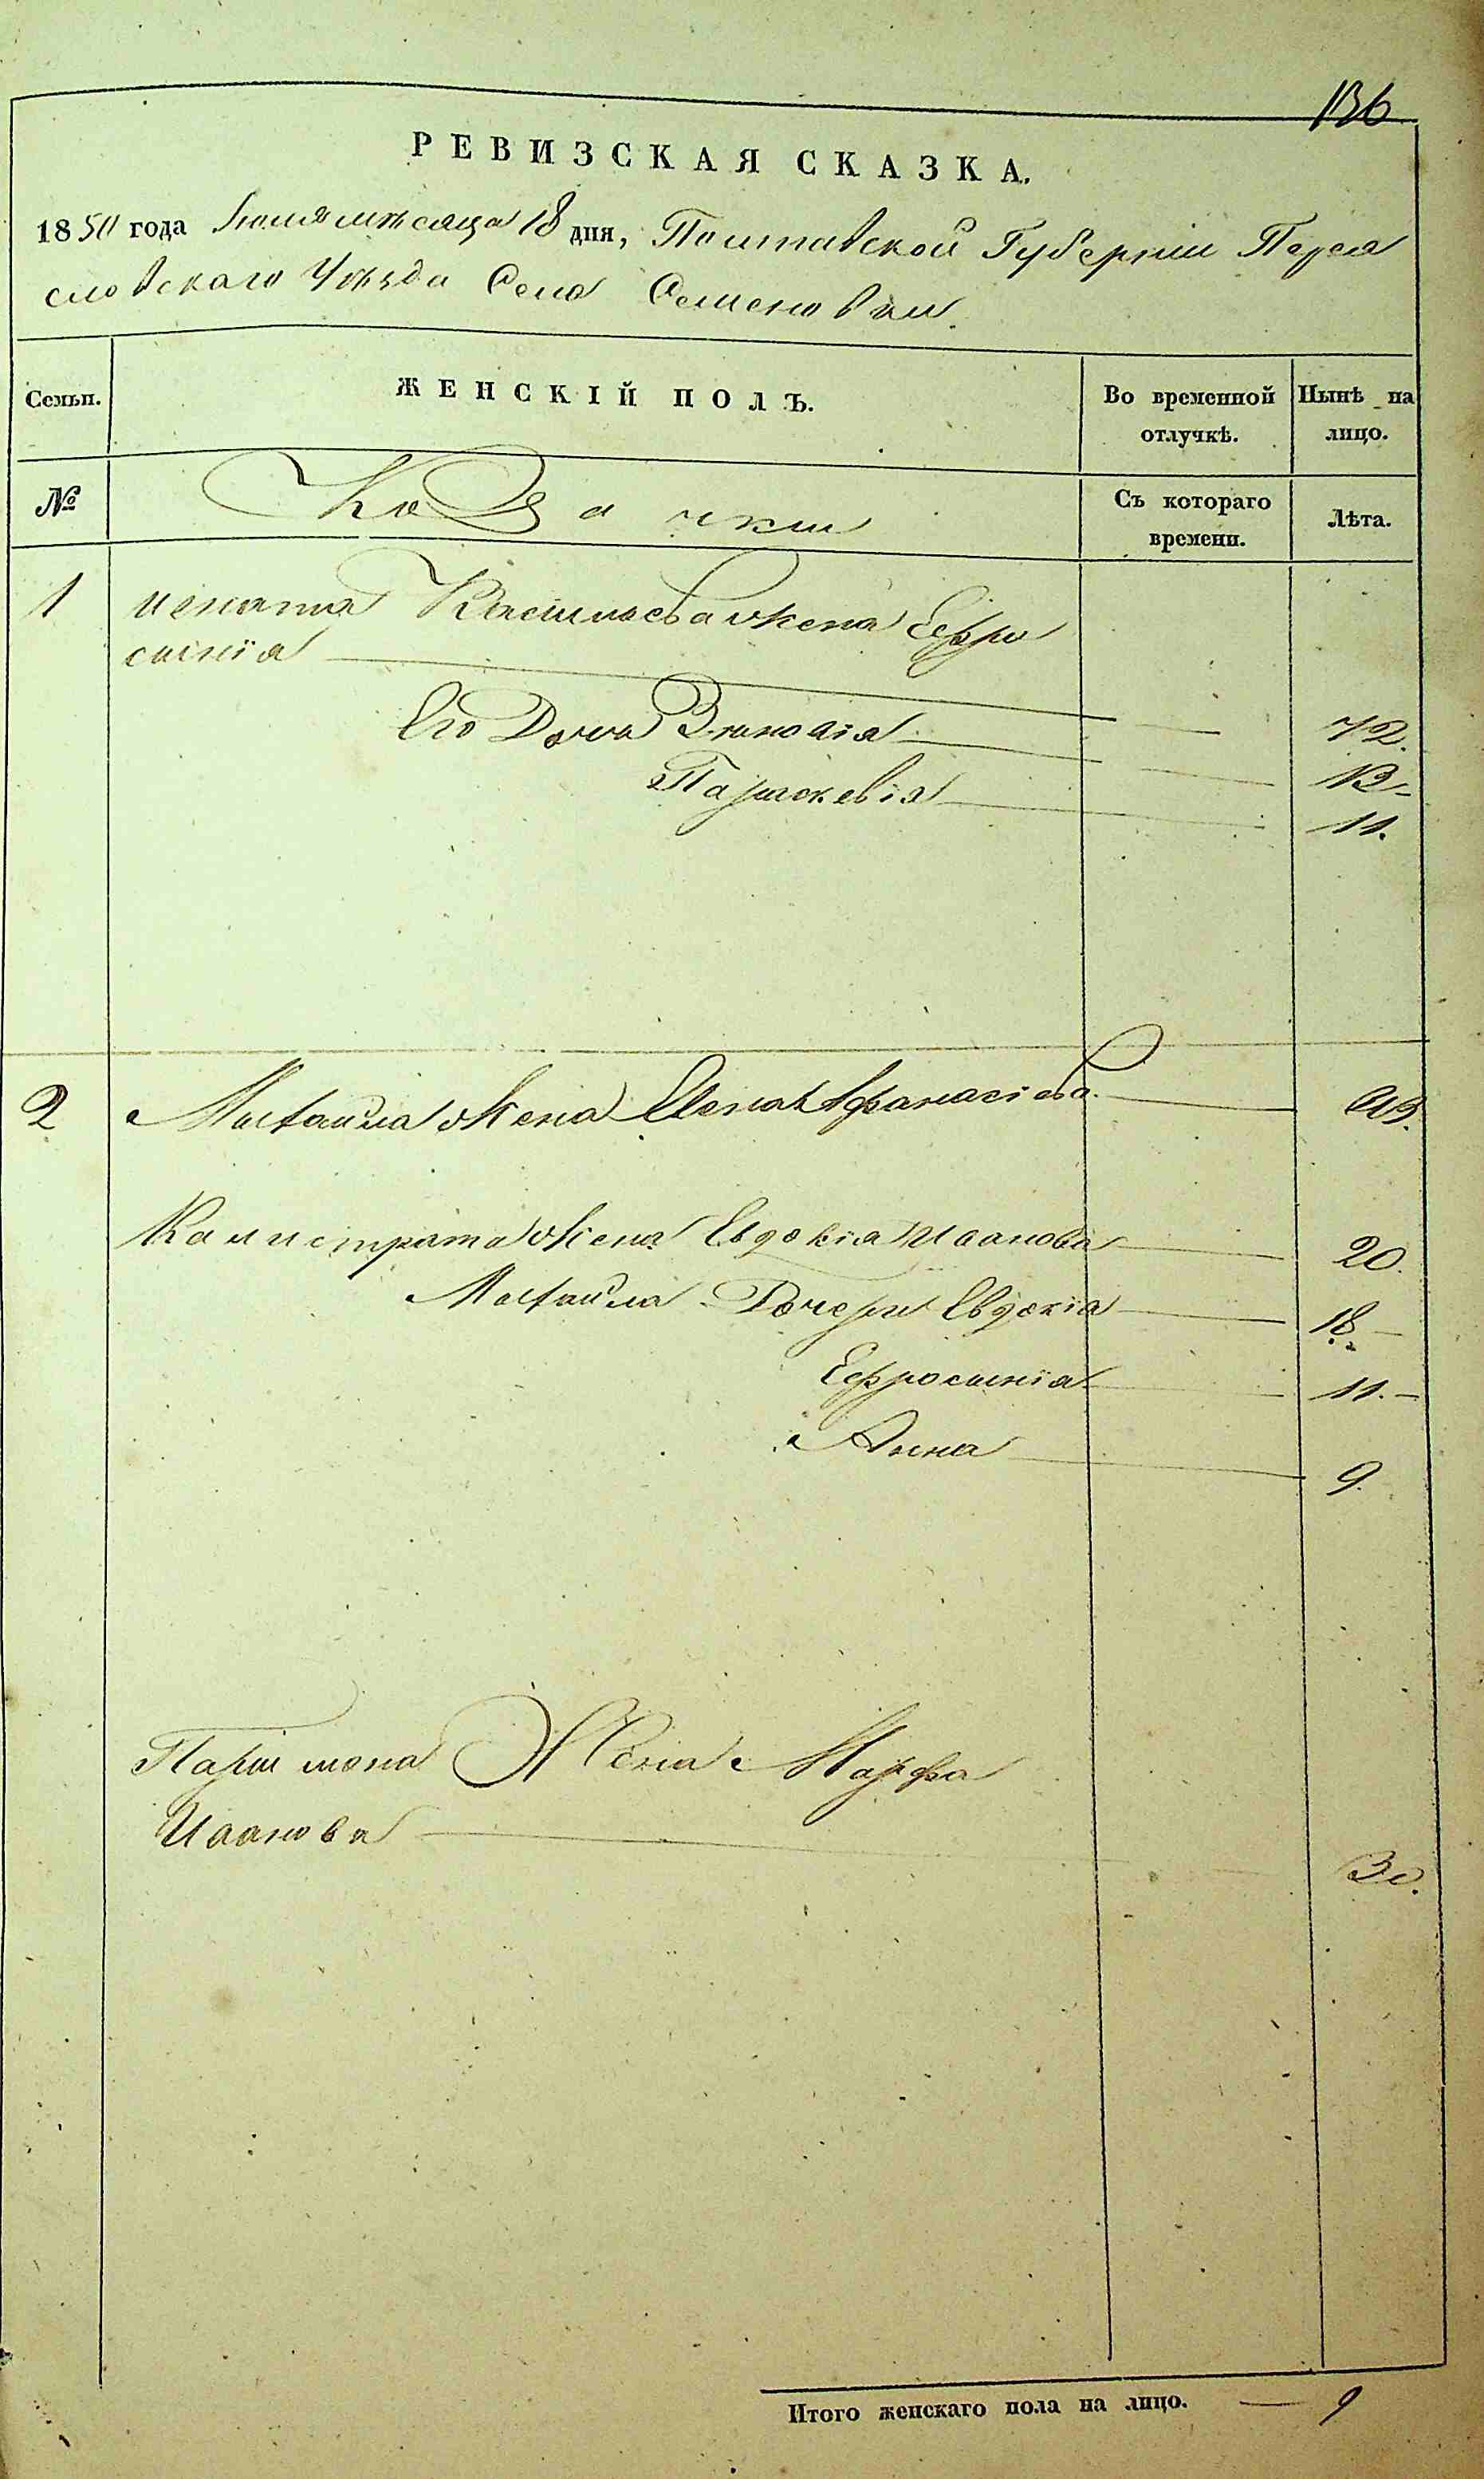 136
РЕВИЗСКАЯ СКАЗКА.
1850 года Іюля мѣсяца 18 дня, Полтавской Губерніи Перея
словскаго Уѣзда Села Семеновки
Семьи. ЖЕНСКІЙ ПОЛЪ. Во временной отлучкѣ. Нынѣ на лицо.
№ Козачки Съ котораго времени. Лѣта.
1 Игната Васильева жена Ефро
синія
42.
Его Дочь Зиновія 13
Параскевія 11.
2 Михаила Жена Елена Афанасіева
Калистрата Жена Евдокія Иванова 20.
Михаила Дочери Евдокія 18
Ефросинія 11.
Анна 9.
Паримона Жена Марфа
Иванова 30.
Итого женскаго пола на лицо. 9